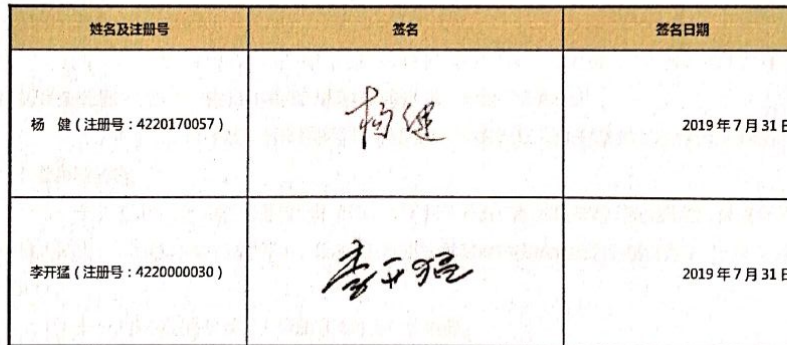 姓名及注册号 签名 签名日期
杨 健（注册号：4220170057） 杨健 2019年7月31日
李开猛（注册号：4220000030） 李开猛 2019年7月31日